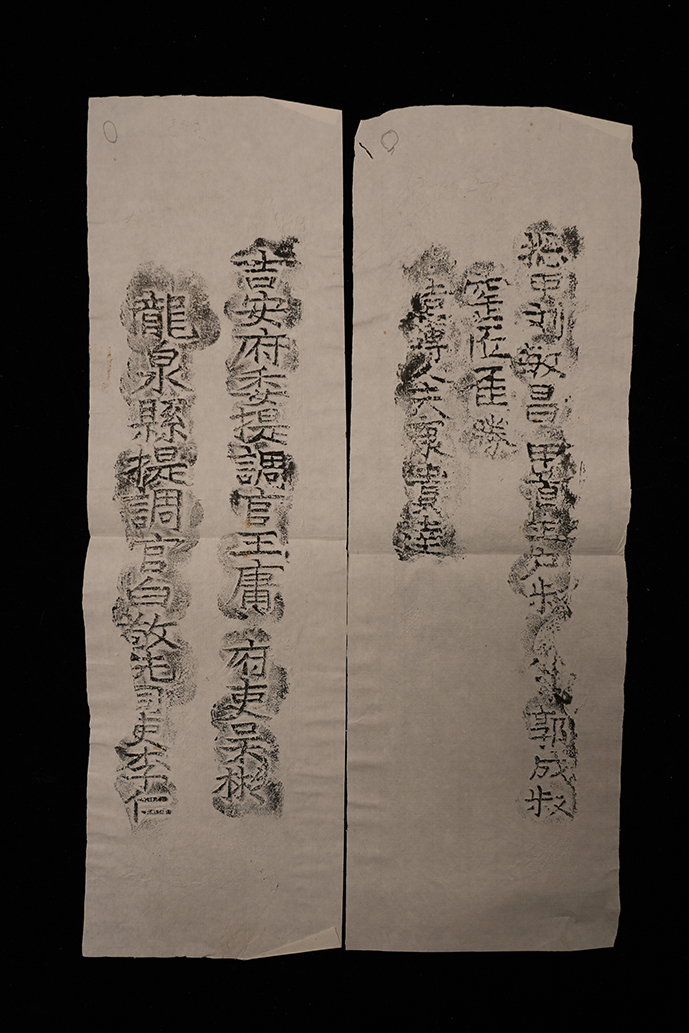 總甲刘敏昌 甲首 郭成叔
窑匠 勝
造磚人夫
吉安府委提調官王庸 府吏吴彬
龍泉縣提調官白敬 司吏李仁